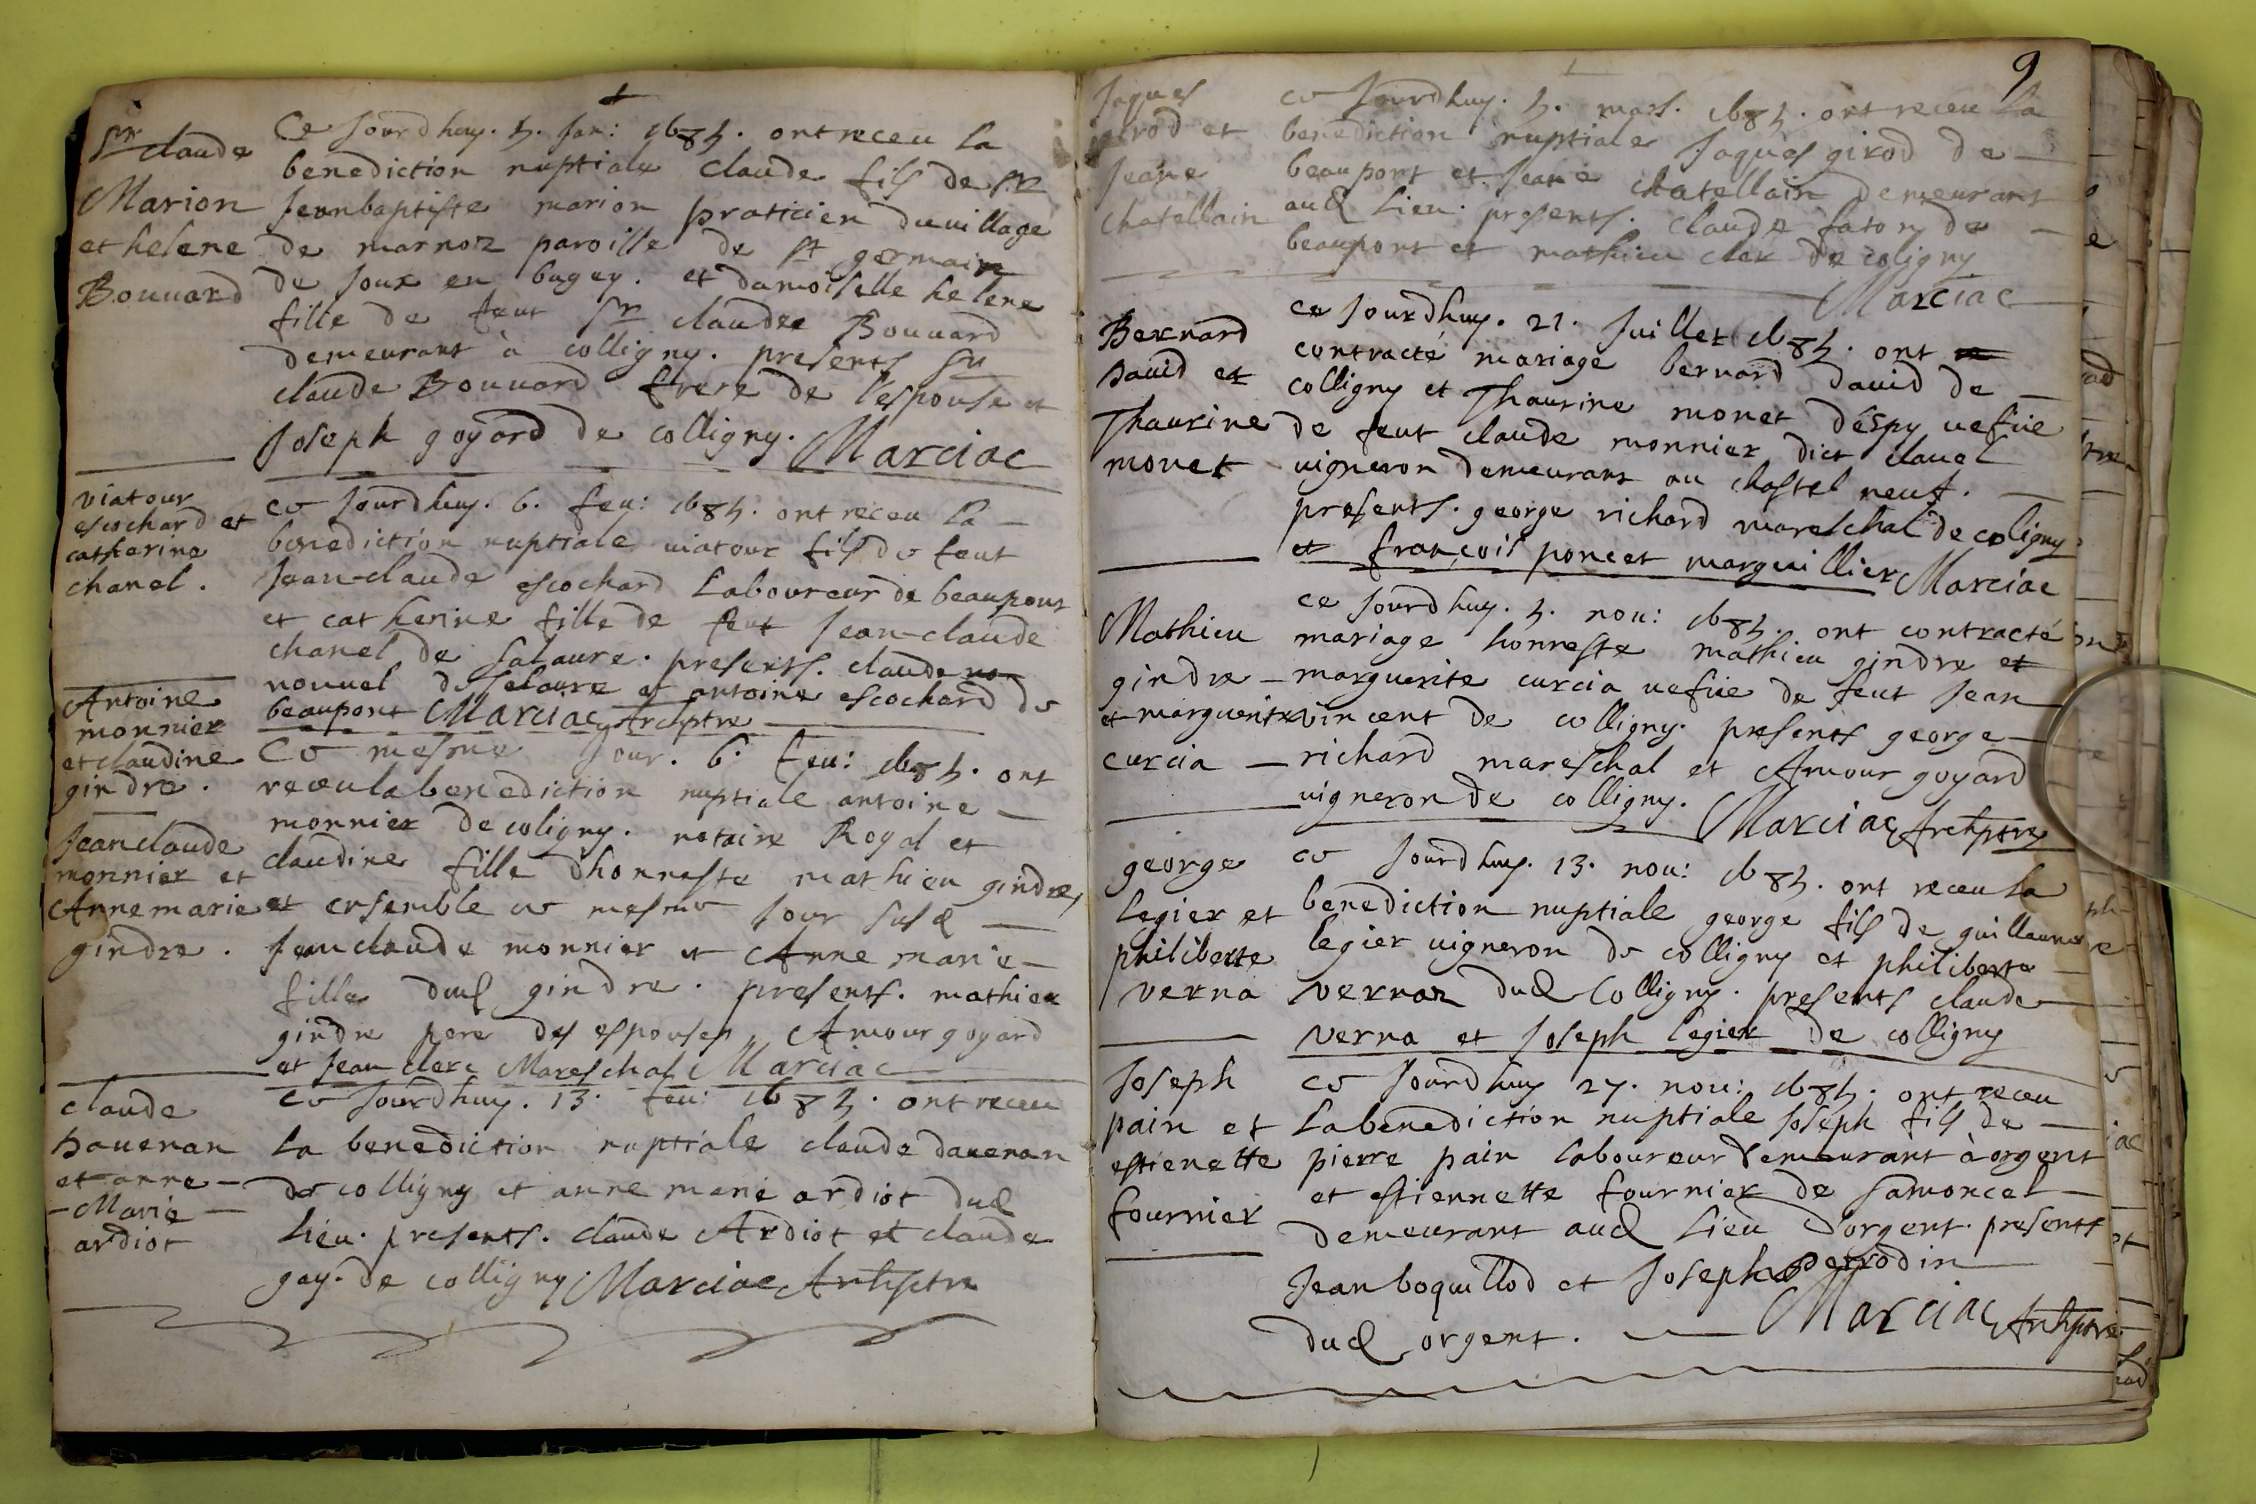 Sr claude
Marion
et helene
Bouuard
Ce Jourdhuy. 5. Jan: 1685. ont receu la
benediction nuptiale claude fils de Sr
Jeanbaptiste marion praticien du uillage
de marnoz paroisse de St germain
de Joux en bugey. et damoiselle helene
fille de feut Sr claudee Bouuard
demeurant à colligny. presents Sr
claude Bouuard frere de l'espouse et
Joseph goyard de colligny. Marciac
viatour
escochard et
catherine
chanel.
ce Jourdhuy. 6. feu: 1685. ont receu la
benediction nuptiale uiatour fils de feut
Jean-claude escochard Laboureur de beaupont
et catherine fille de feut Jean-claude
chanel de Salaure. presents. claude
nouuel de Selaure et antoine escochard de
beaupont Marciac Archptre
Antoine
monnier
et claudine
gindre.
Ce mesme Jour. 6. feu: 1685. ont
receu la benediction nuptiale antoine
monnier de coligny. notaire Royal et
claudine fille d'honneste mathieu gindre,
Jeanclaude
monnier et
Anne marie
gindre.
et ensemble ce mesme Jour susd
Jeanclaude monnier et Anne marie
fille dud gindre. presents. mathieu
gindre pere des espouses, Amour goyard
et Jean clerc Mareschal Marciac
claude
dauenan
et anne
Marie
ardiot
ce Jourdhuy. 13. feu: 1685. ont receu
la benediction nuptiale claude dauenan
de colligny et anne marie ardiot dud
Lieu. presents. claude Ardiot et claude
gay. de colligny Marciac Archptre
9
Jaques
girod et
Jeane
chatellain
ce Jourdhuy. 5. mars. 1685. ont receu la
benediction nuptiale Jaques girod de
beaupont et Jeane chatellain demeurant
aud Lieu. presents. claude faton de
beaupont et mathieu cler de coligny
Marciac
Bernard
dauid et
Thaurine
monet
ce Jourdhuy. 21. Juillet 1685. ont
contracté mariage bernard dauid de
colligny et Thaurine monet d'espy uefue
de feut claude monnier dict clauel
uigneron demeurant au chastel neuf.
presents. george richard mareschal de coligny
et françois poncet marguillier Marciac
Mathieu
gindre
et marguerite
curcia
ce Jourdhuy. 5. nou: 1685. ont contracté
mariage honneste mathieu gindre et
marguerite curcia uefue de feut Jean
vincent de colligny. presents george
richard mareschal et Amour goyard
uigneron de colligny. Marciac Archptre
george
legier et
philiberte
verna
ce Jourdhuy. 13. nou: 1685. ont receu la
benediction nuptiale george fils de guillaume
legier uigneron de colligny et philiberte
vernaz dud Colligny. presents claude
verna et Joseph legier de colligny
Joseph
pain et
estienette
fournier
ce Jourdhuy 27. nou: 1685. ont receu
La benediction nuptiale Joseph fils de
pierre pain laboureur demeurant à orgent
et estiennette fournier de samoncel
demeurant aud Lieu d'orgent. presents
Jean boquillod et Joseph perrodin
dud orgent. Marciac Archptre